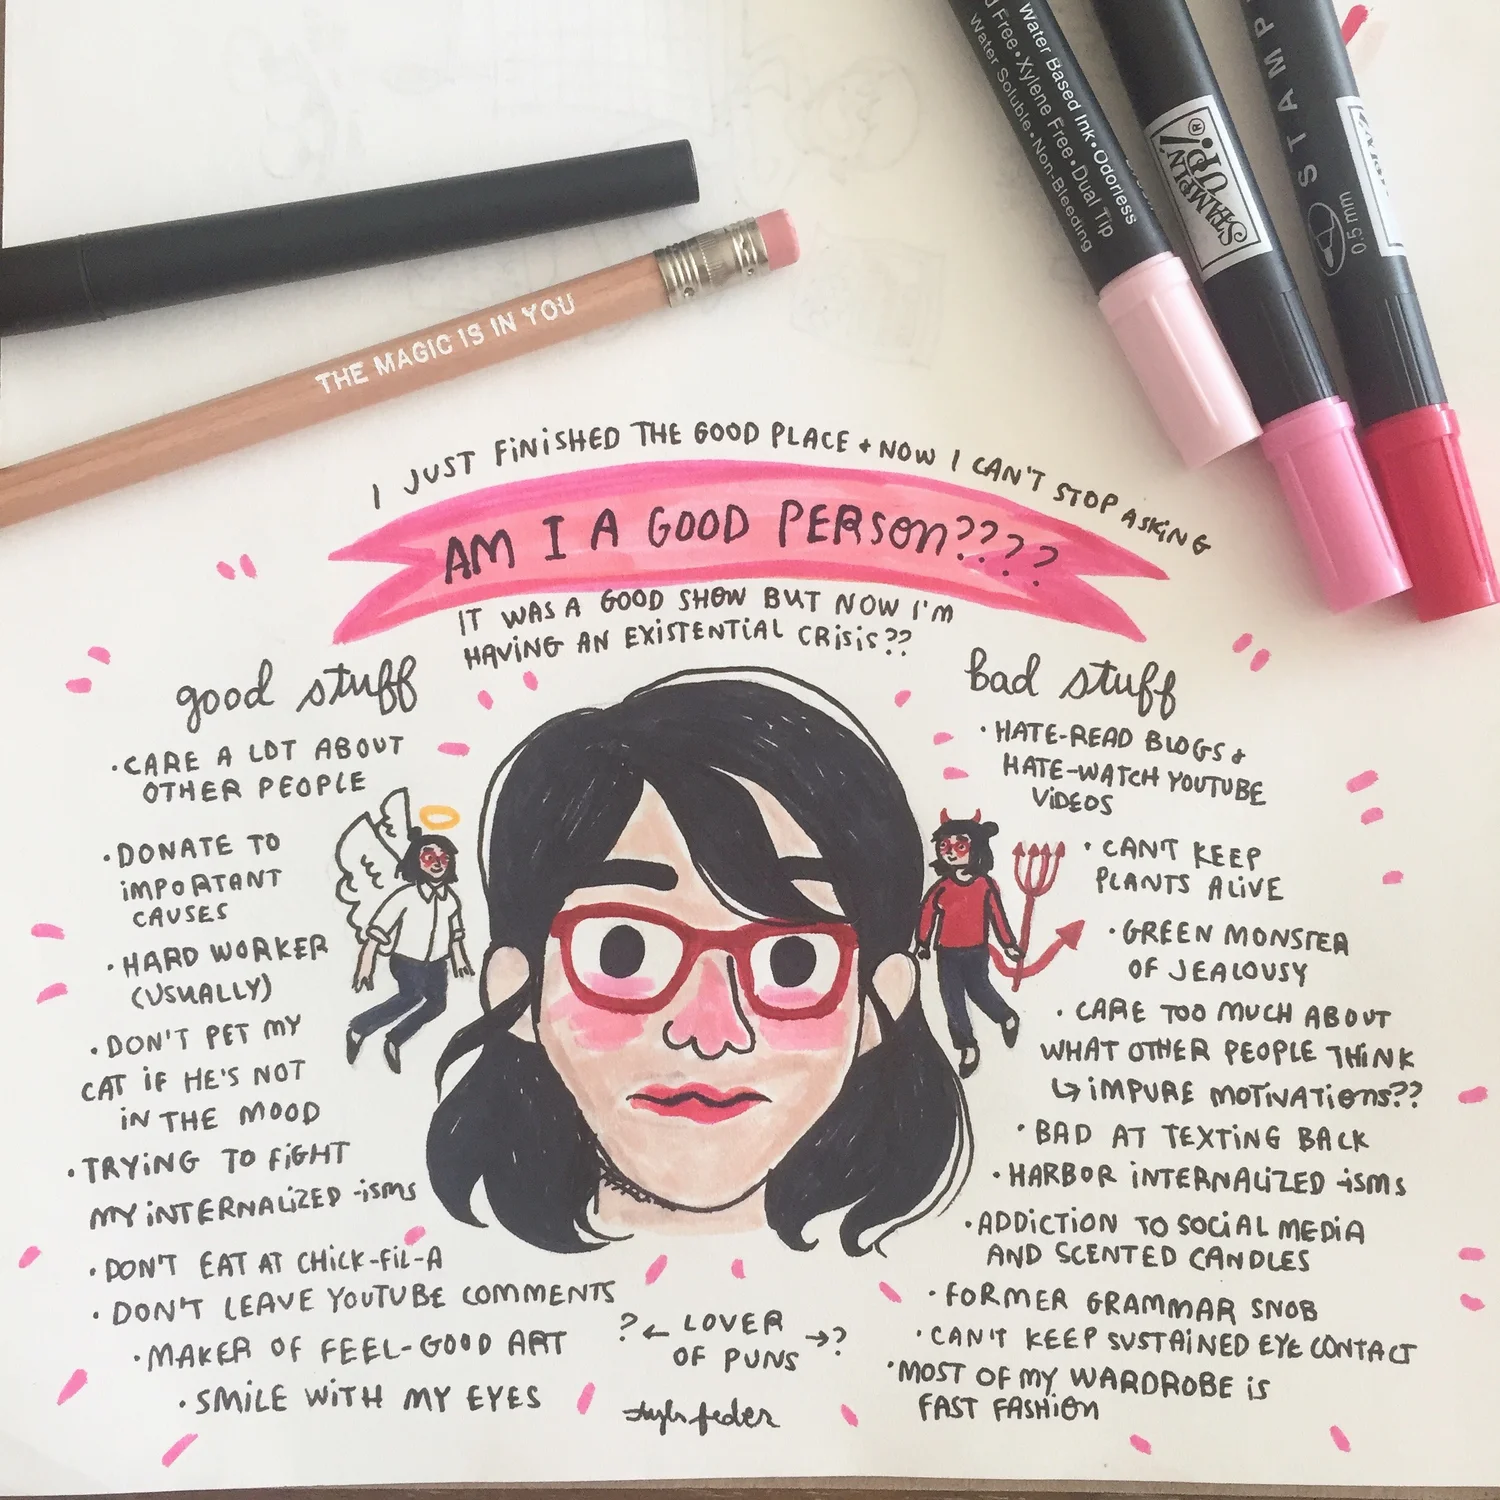 Water Based Ink • Odorless
Free • Xylene Free • Dual Tip
Water Soluble • Non-Bleeding
STAMPIN'
UP!®
STAMP
0.5 mm
THE MAGIC IS IN YOU
I JUST FINISHED THE GOOD PLACE + NOW I CAN'T STOP ASKING
AM I A GOOD PERSON????
IT WAS A GOOD SHOW BUT NOW I'M
HAVING AN EXISTENTIAL CRISIS??
good stuff
• CARE A LOT ABOUT
OTHER PEOPLE
• DONATE TO
IMPORTANT
CAUSES
• HARD WORKER
(USUALLY)
• DON'T PET MY
CAT IF HE'S NOT
IN THE MOOD
• TRYING TO FIGHT
MY INTERNALIZED -ISMS
• DON'T EAT AT CHICK-FIL-A
• DON'T LEAVE YOUTUBE COMMENTS
• MAKER OF FEEL-GOOD ART
• SMILE WITH MY EYES
bad stuff
• HATE-READ BLOGS +
HATE-WATCH YOUTUBE
VIDEOS
• CAN'T KEEP
PLANTS ALIVE
• GREEN MONSTER
OF JEALOUSY
• CARE TOO MUCH ABOUT
WHAT OTHER PEOPLE THINK
↳ IMPURE MOTIVATIONS??
• BAD AT TEXTING BACK
• HARBOR INTERNALIZED -ISMS
• ADDICTION TO SOCIAL MEDIA
AND SCENTED CANDLES
• FORMER GRAMMAR SNOB
• CAN'T KEEP SUSTAINED EYE CONTACT
• MOST OF MY WARDROBE IS
FAST FASHION
? ← LOVER → ?
OF PUNS
feder